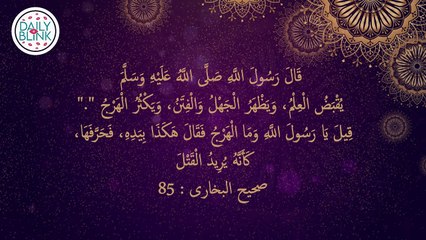 DAILY
BLINK
قَالَ رَسُولَ اللَّهِ صَلَّى اللَّهُ عَلَيْهِ وَسَلَّمَ
يُقْبَضُ الْعِلْمُ، وَيَظْهَرُ الْجَهْلُ وَالْفِتَنُ، وَيَكْثُرُ الْهَرْجُ "."
قِيلَ يَا رَسُولَ اللَّهِ وَمَا الْهَرْجُ فَقَالَ هَكَذَا بِيَدِهِ، فَحَرَّفَهَا،
كَأَنَّهُ يُرِيدُ الْقَتْلَ
صحیح البخاری : 85